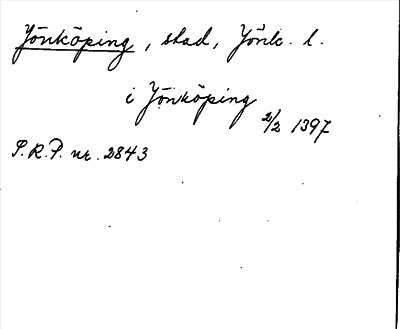 Jönköping, stad, Jönk. l.
i Jönköping
2/2 1397
S.R.P. nr. 2843